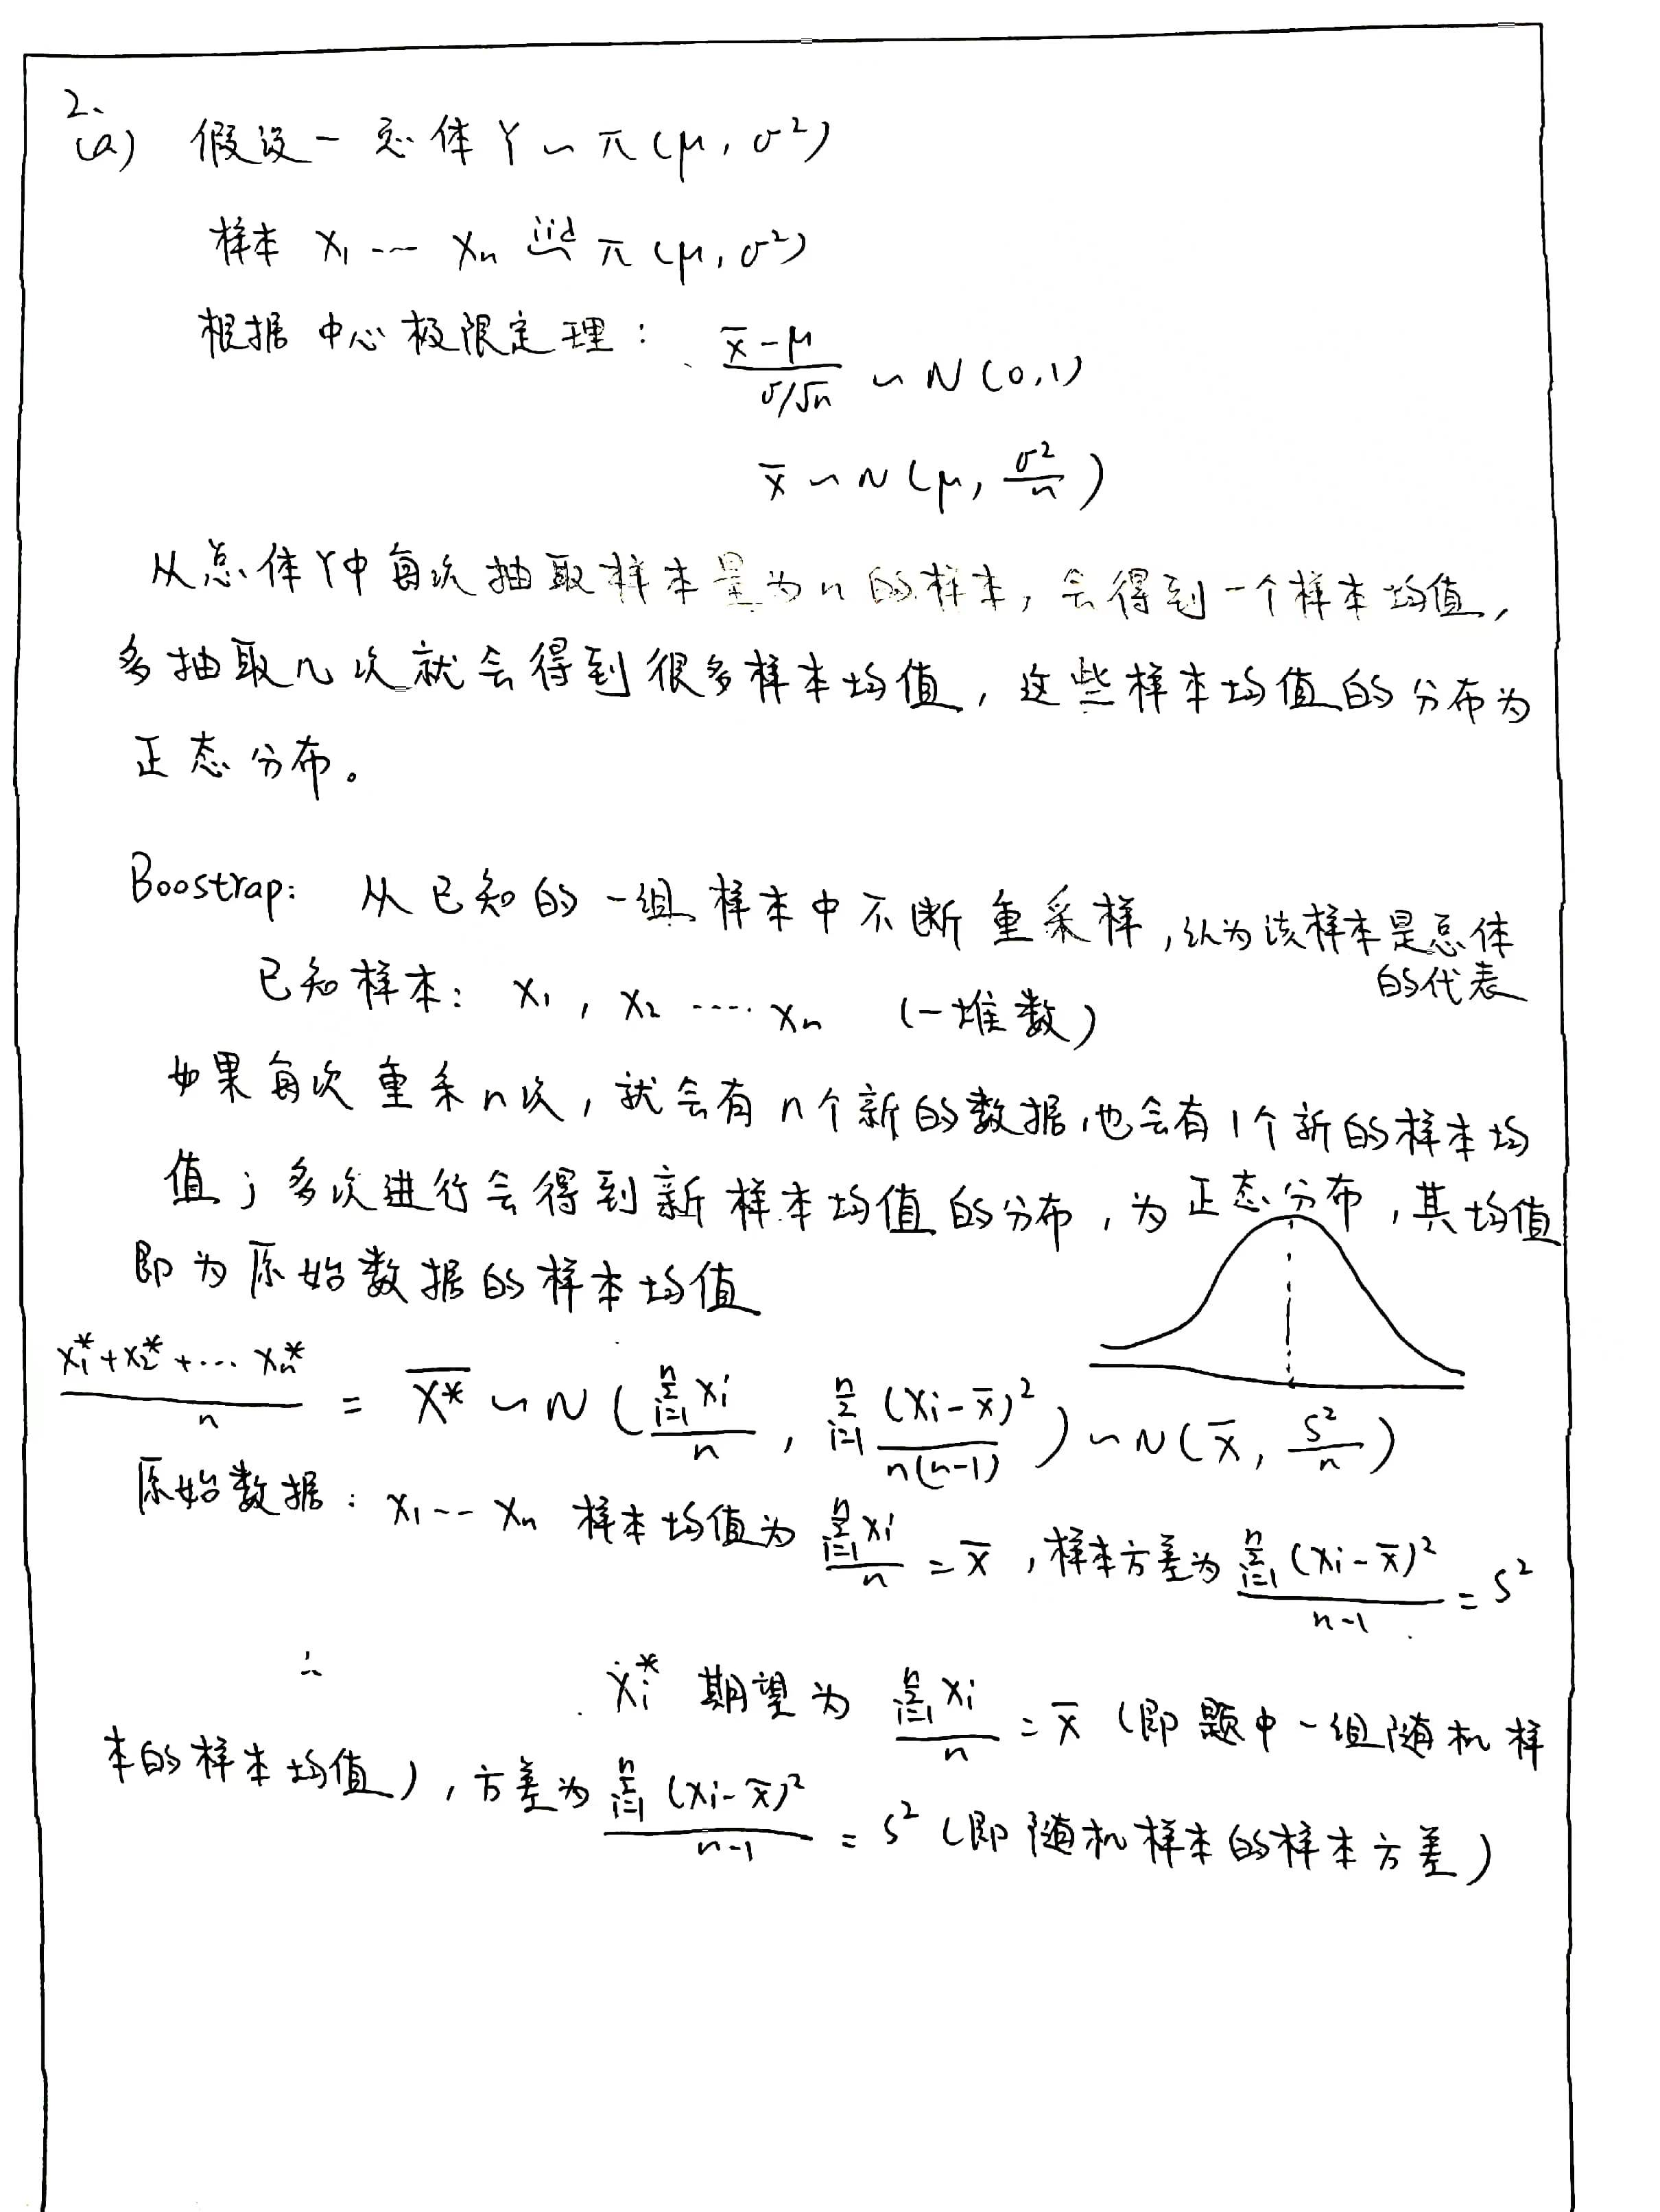 2、
(a) 假设一总体 Y ~ π(μ, σ²)
样本 X₁ --- Xₙ iid ~ π(μ, σ²)
根据中心极限定理: (x̄-μ)/(σ/√n) ~ N(0,1)
x̄ ~ N(μ, σ²/n)
从总体Y中每次抽取样本量为n的样本，会得到一个样本均值，
多抽取几次就会得到很多样本均值，这些样本均值的分布为
正态分布。
Boostrap: 从已知的一组样本中不断重采样，认为该样本是总体
的代表
已知样本: x₁, x₂ ···· xₙ (一堆数)
如果每次重采n次，就会有n个新的数据，也会有1个新的样本均
值；多次进行会得到新样本均值的分布，为正态分布，其均值
即为原始数据的样本均值
(x₁*+x₂*+··· xₙ*)/n = X̄* ~ N(Σᵢ₌₁ⁿ xᵢ/n, Σᵢ₌₁ⁿ (xᵢ-x̄)²/(n(n-1))) ~ N(x̄, s²/n)
原始数据: x₁--- xₙ 样本均值为 Σᵢ₌₁ⁿ xᵢ/n = x̄，样本方差为 Σᵢ₌₁ⁿ (xᵢ-x̄)²/(n-1) = s²
∴ xᵢ* 期望为 Σᵢ₌₁ⁿ xᵢ/n = x̄ (即题中一组随机样
本的样本均值)，方差为 Σᵢ₌₁ⁿ (xᵢ-x̄)²/(n-1) = s² (即随机样本的样本方差)